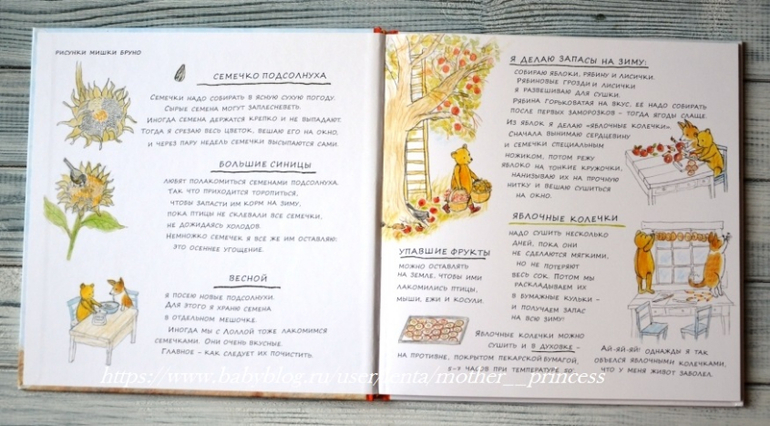 РИСУНКИ МИШКИ БРУНО
СЕМЕЧКО ПОДСОЛНУХА
СЕМЕЧКИ НАДО СОБИРАТЬ В ЯСНУЮ СУХУЮ ПОГОДУ.
СЫРЫЕ СЕМЕНА МОГУТ ЗАПЛЕСНЕВЕТЬ.
ИНОГДА СЕМЕНА ДЕРЖАТСЯ КРЕПКО И НЕ ВЫПАДАЮТ.
ТОГДА Я СРЕЗАЮ ВЕСЬ ЦВЕТОК, ВЕШАЮ ЕГО НА ОКНО,
И ЧЕРЕЗ ПАРУ НЕДЕЛЬ СЕМЕЧКИ ВЫСЫПАЮТСЯ САМИ.
БОЛЬШИЕ СИНИЦЫ
ЛЮБЯТ ПОЛАКОМИТЬСЯ СЕМЕНАМИ ПОДСОЛНУХА.
ТАК ЧТО ПРИХОДИТСЯ ТОРОПИТЬСЯ,
ЧТОБЫ ЗАПАСТИ ИМ КОРМ НА ЗИМУ,
ПОКА ПТИЦЫ НЕ СКЛЕВАЛИ ВСЕ СЕМЕЧКИ,
НЕ ДОЖИДАЯСЬ ХОЛОДОВ.
НЕМНОЖКО СЕМЕЧЕК Я ВСЁ ЖЕ ИМ ОСТАВЛЯЮ:
ЭТО ОСЕННЕЕ УГОЩЕНИЕ.
ВЕСНОЙ
Я ПОСЕЮ НОВЫЕ ПОДСОЛНУХИ.
ДЛЯ ЭТОГО Я ХРАНЮ СЕМЕНА
В ОТДЕЛЬНОМ МЕШОЧКЕ.
ИНОГДА МЫ С ЛОЛЛОЙ ТОЖЕ ЛАКОМИМСЯ
СЕМЕЧКАМИ. ОНИ ОЧЕНЬ ВКУСНЫЕ.
ГЛАВНОЕ – КАК СЛЕДУЕТ ИХ ПОЧИСТИТЬ.
Я ДЕЛАЮ ЗАПАСЫ НА ЗИМУ:
СОБИРАЮ ЯБЛОКИ, РЯБИНУ И ЛИСИЧКИ.
РЯБИНОВЫЕ ГРОЗДИ И ЛИСИЧКИ
Я РАЗВЕШИВАЮ ДЛЯ СУШКИ.
РЯБИНА ГОРЬКОВАТАЯ НА ВКУС, ЕЁ НАДО СОБИРАТЬ
ПОСЛЕ ПЕРВЫХ ЗАМОРОЗКОВ – ТОГДА ЯГОДЫ СЛАЩЕ.
ИЗ ЯБЛОК Я ДЕЛАЮ «ЯБЛОЧНЫЕ КОЛЕЧКИ».
СНАЧАЛА ВЫНИМАЮ СЕРДЦЕВИНУ
И СЕМЕЧКИ СПЕЦИАЛЬНЫМ
НОЖИКОМ, ПОТОМ РЕЖУ
ЯБЛОКО НА ТОНКИЕ КРУЖОЧКИ,
НАНИЗЫВАЮ ИХ НА ПРОЧНУЮ
НИТКУ И ВЕШАЮ СУШИТЬСЯ
НА ОКНО.
ЯБЛОЧНЫЕ КОЛЕЧКИ
НАДО СУШИТЬ НЕСКОЛЬКО
ДНЕЙ, ПОКА ОНИ
НЕ СДЕЛАЮТСЯ МЯГКИМИ,
НО НЕ ПОТЕРЯЮТ
ВЕСЬ СОК. ПОТОМ МЫ
РАСКЛАДЫВАЕМ ИХ
В БУМАЖНЫЕ КУЛЬКИ –
И ПОЛУЧАЕМ ЗАПАС
НА ВСЮ ЗИМУ!
УПАВШИЕ ФРУКТЫ
МОЖНО ОСТАВЛЯТЬ
НА ЗЕМЛЕ, ЧТОБЫ ИМИ
ЛАКОМИЛИСЬ ПТИЦЫ,
МЫШИ, ЕЖИ И КОСУЛИ.
ЯБЛОЧНЫЕ КОЛЕЧКИ МОЖНО
СУШИТЬ И В ДУХОВКЕ –
НА ПРОТИВНЕ, ПОКРЫТОМ ПЕКАРСКОЙ БУМАГОЙ,
ЧАСОВ ПРИ ТЕМПЕРАТУРЕ
АЙ-ЯЙ-ЯЙ! ОДНАЖДЫ Я ТАК
ОБЪЕЛСЯ ЯБЛОЧНЫМИ КОЛЕЧКАМИ,
ЧТО У МЕНЯ ЖИВОТ ЗАБОЛЕЛ.
https://www.babyblog.ru/user/lenta/mother__princess